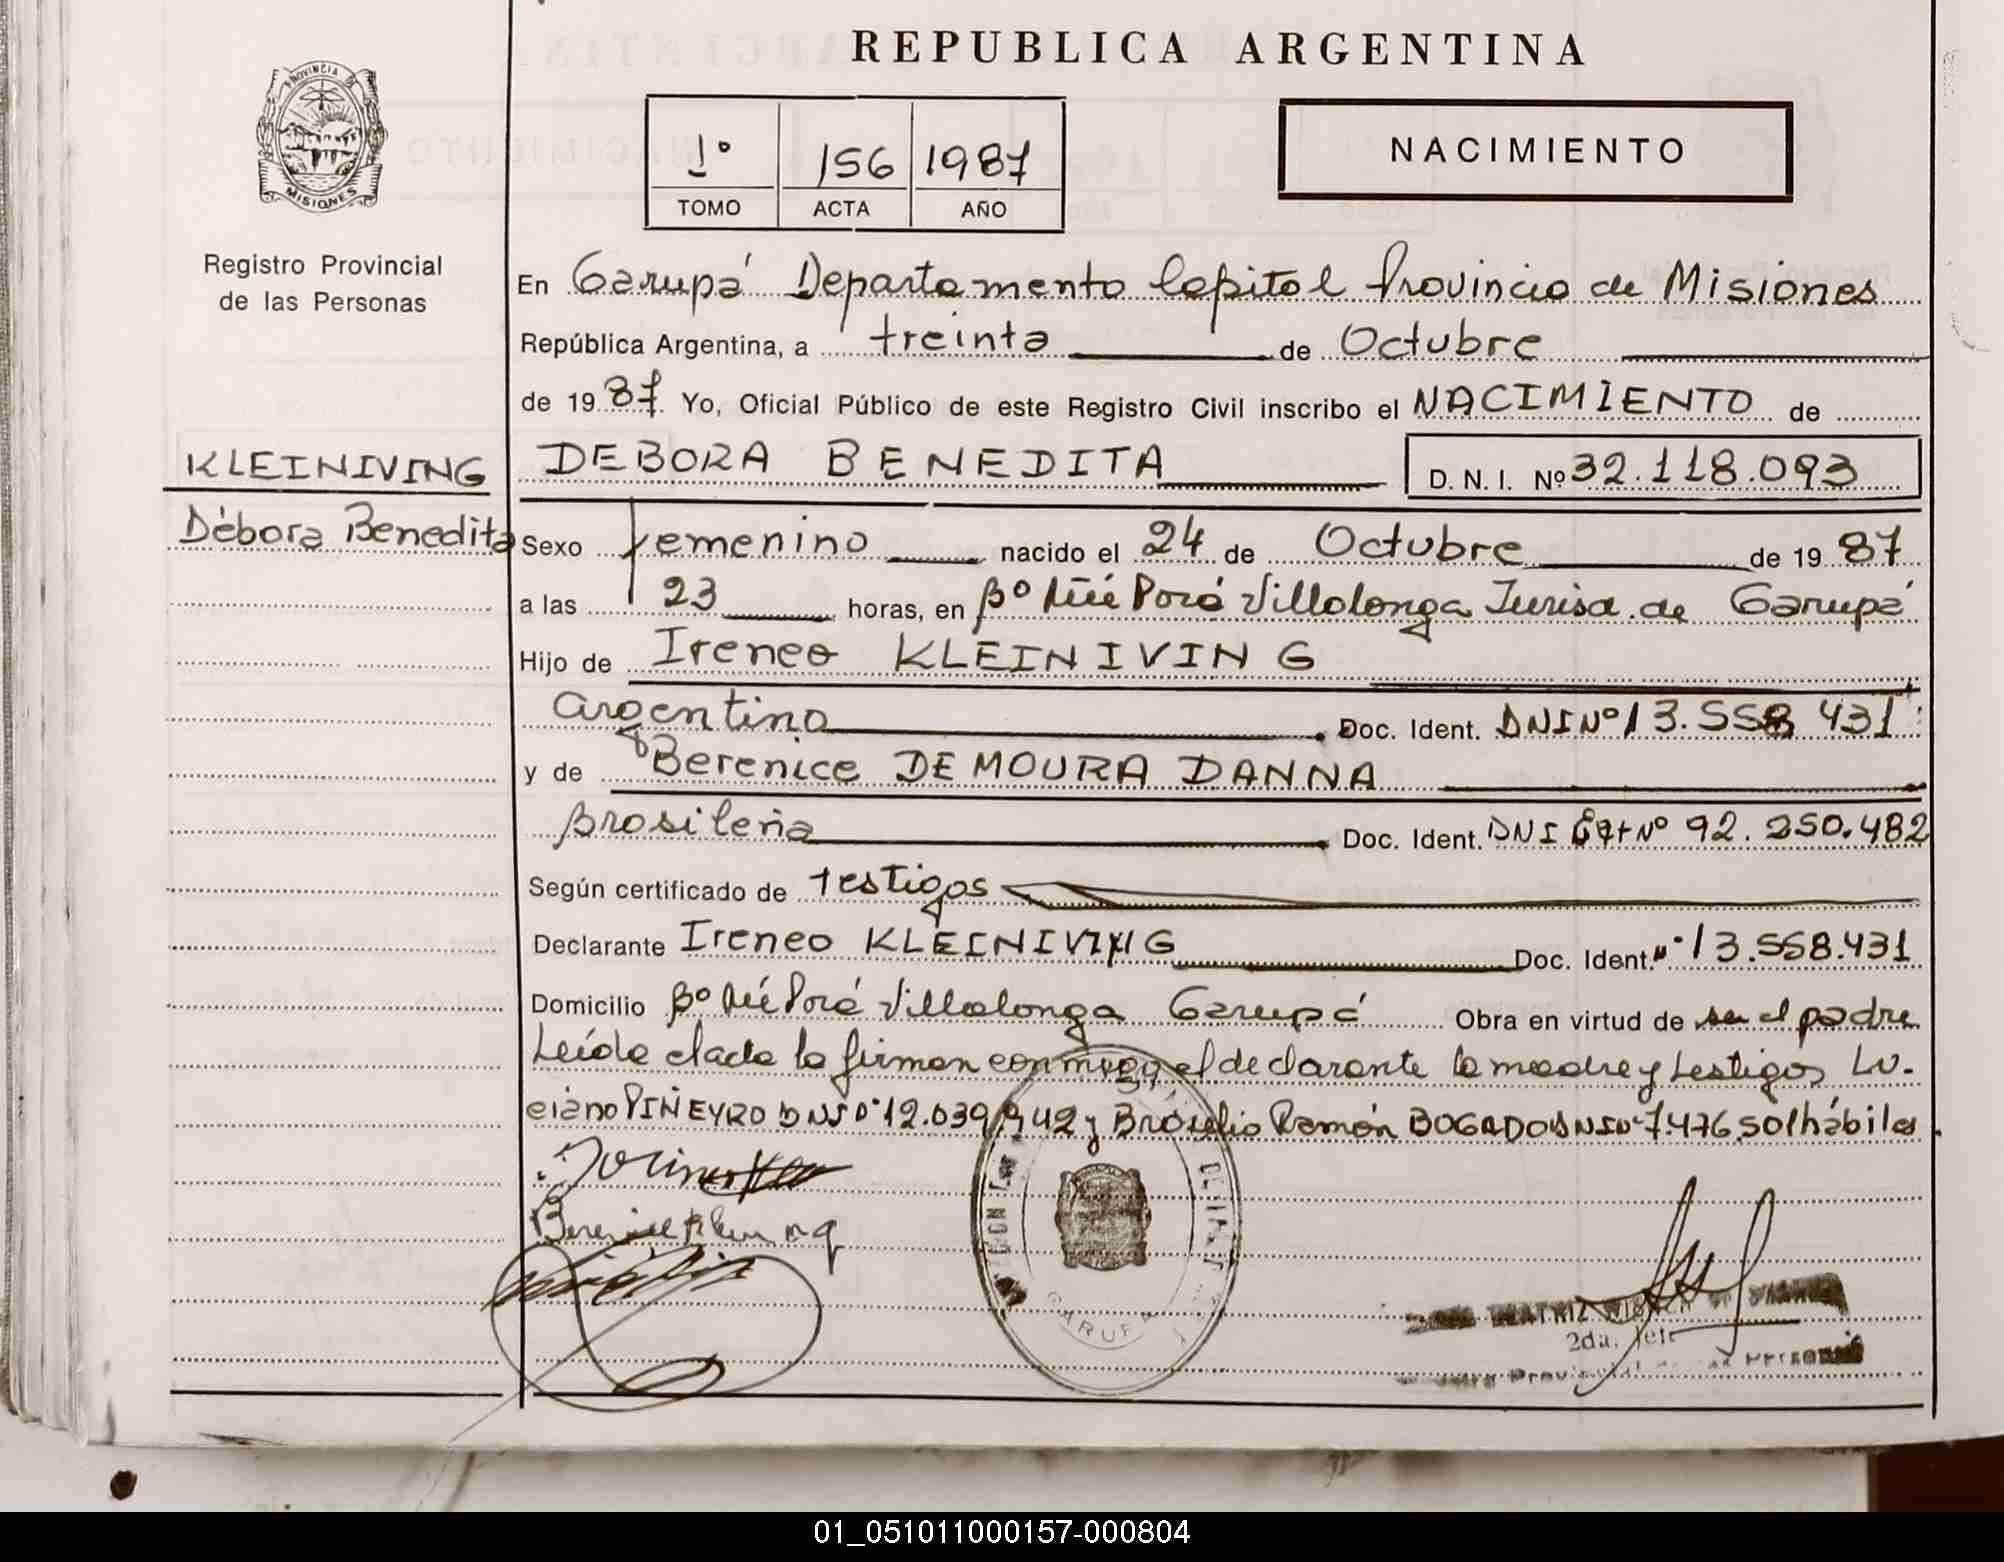 REPUBLICA ARGENTINA
PROVINCIA DE
MISIONES
Registro Provincial
de las Personas
1º 156 1987
TOMO ACTA AÑO
NACIMIENTO
En Garupá Departamento Capital Provincia de Misiones
República Argentina, a treinta de Octubre
de 19 87 Yo, Oficial Público de este Registro Civil inscribo el NACIMIENTO de
KLEINIVING
DEBORA BENEDITA D. N. I. Nº 32.118.093
Débora Benedita
Sexo femenino nacido el 24 de Octubre de 19 87
a las 23 horas, en Bº Ñú Porá Villalonga Jurisd. de Garupá
Hijo de Ireneo KLEINIVING
argentino Doc. Ident. DNI Nº 13.558 431
y de Berenice DE MOURA DANNA
Brasileña Doc. Ident. DNI Nº 92.250.482
Según certificado de testigos
Declarante Ireneo KLEINIVING Doc. Ident. 13.558.431
Domicilio Bº Ñú Porá Villalonga Garupá Obra en virtud de ser el padre
Leída el acta la firman conmigo el declarante la madre y testigos Lu-
ciano PIÑEYRO DNI Nº 12.039.942 y Ramón BOGADO DNI Nº 7.476.501 hábiles
GARUPA
BEATRIZ
2da. Jefe
01_051011000157-000804